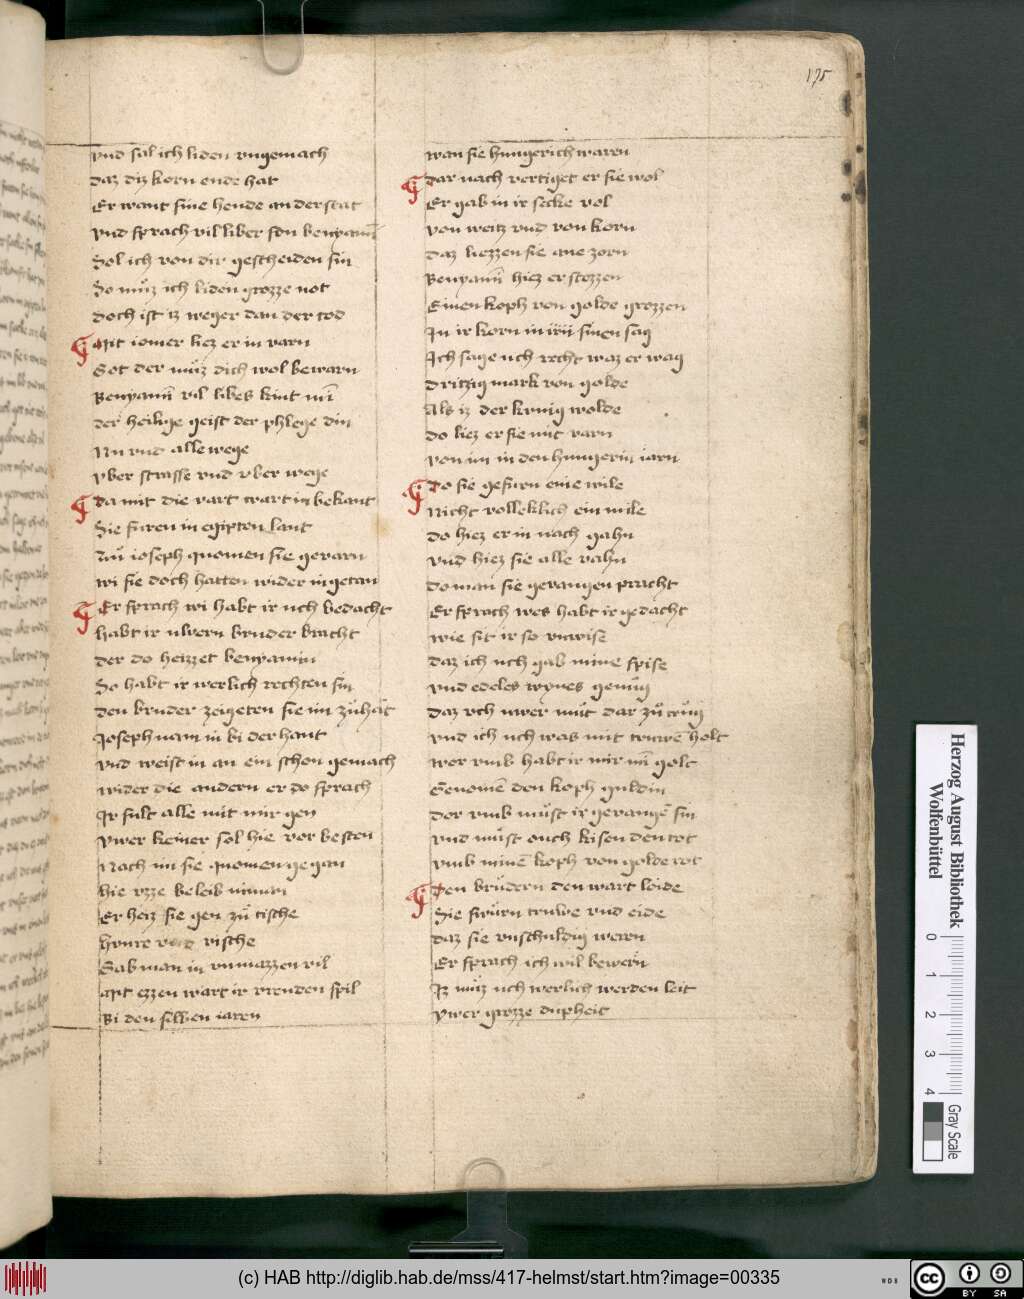 175
vnd sal ich liden vngemach
daz diz korn ende hat
Er want sine hende an der stat
vnd sprach vil liber son benyamī
Sol ich von dir gescheiden sin
So muͦz ich liden grozze not
doch ist iz weger dan der tod
Mit iomer liez er in varn
Got der muͦz dich wol bewarn
Benyamī vil libes kint mī
der heilige geist der phlege din
Nu vnd alle wege
vber strasse vnd vber wege
da mit die vart wart in bekant
Sie furen in egipten lant
Nu ioseph quomen sie gevarn
wi sie doch hatten wider in getan
Er sprach wi habt ir uch bedacht
habt ir uwern bruder bracht
der do heizzet benyamin
So habt ir werlich rechten sin
den bruder zeigeten sie im zuͦ hāt
Joseph nam in bi der hant
vnd weist in an ein schon gemach
wider die andern er do sprach
Jr sult alle mit mir gen
vwer keiner sol hie vor besten
Nach im sie quomen gegan
hie vzze beleib niman
Er heiz sie gen zuͦ tische
vische
Gab man in vnmazzen vil
Mit ezzen wart ir vreuden spil
Bi den selben iaren
wan sie hungerich waren
dar nach vertiget er sie wol
Er gab in ir secke vol
von weitz vnd von korn
daz liezzen sie ane zorn
Benyamī hiez er stozzen
Einen koph von golde grozzen
Jn ir korn in sinen sag
Jch sage uch recht waz er wag
dritzig mark von golde
Als iz der kunig wolde
do liez er sie mit varn
von im in den hungerin iarn
do sie gefurn eine wile
Nicht volleklich ein mile
do hiez er in nach gahn
vnd hiez sie alle vahn
do man sie gevangen pracht
Er sprach wes habt ir gedacht
wie sit ir so vnwise
daz ich uch gab mine spise
vnd edeles wynes genuͦg
daz vch uwer muͦt dar zuͦ truͦg
vnd ich uch was mit truwē holt
wor vmb habt ir mir mī golt
Genomē den koph guldin
dor vmb muͦst ir gevangē sin
vnd muͦst ouch kisen den tot
vmb minē koph von golde rot
den bruͦdern den wart leide
Sie swuͦrn truwe vnd eide
daz sie vnschuldig wern
Er sprach ich wil bewern
Jz muͦz uch werlich werden leit
vwer grozze dupheit
Herzog August Bibliothek
Wolfenbüttel
0 1 2 3 4
Gray Scale
(c) HAB http://diglib.hab.de/mss/417-helmst/start.htm?image=00335
WDB
cc BY SA